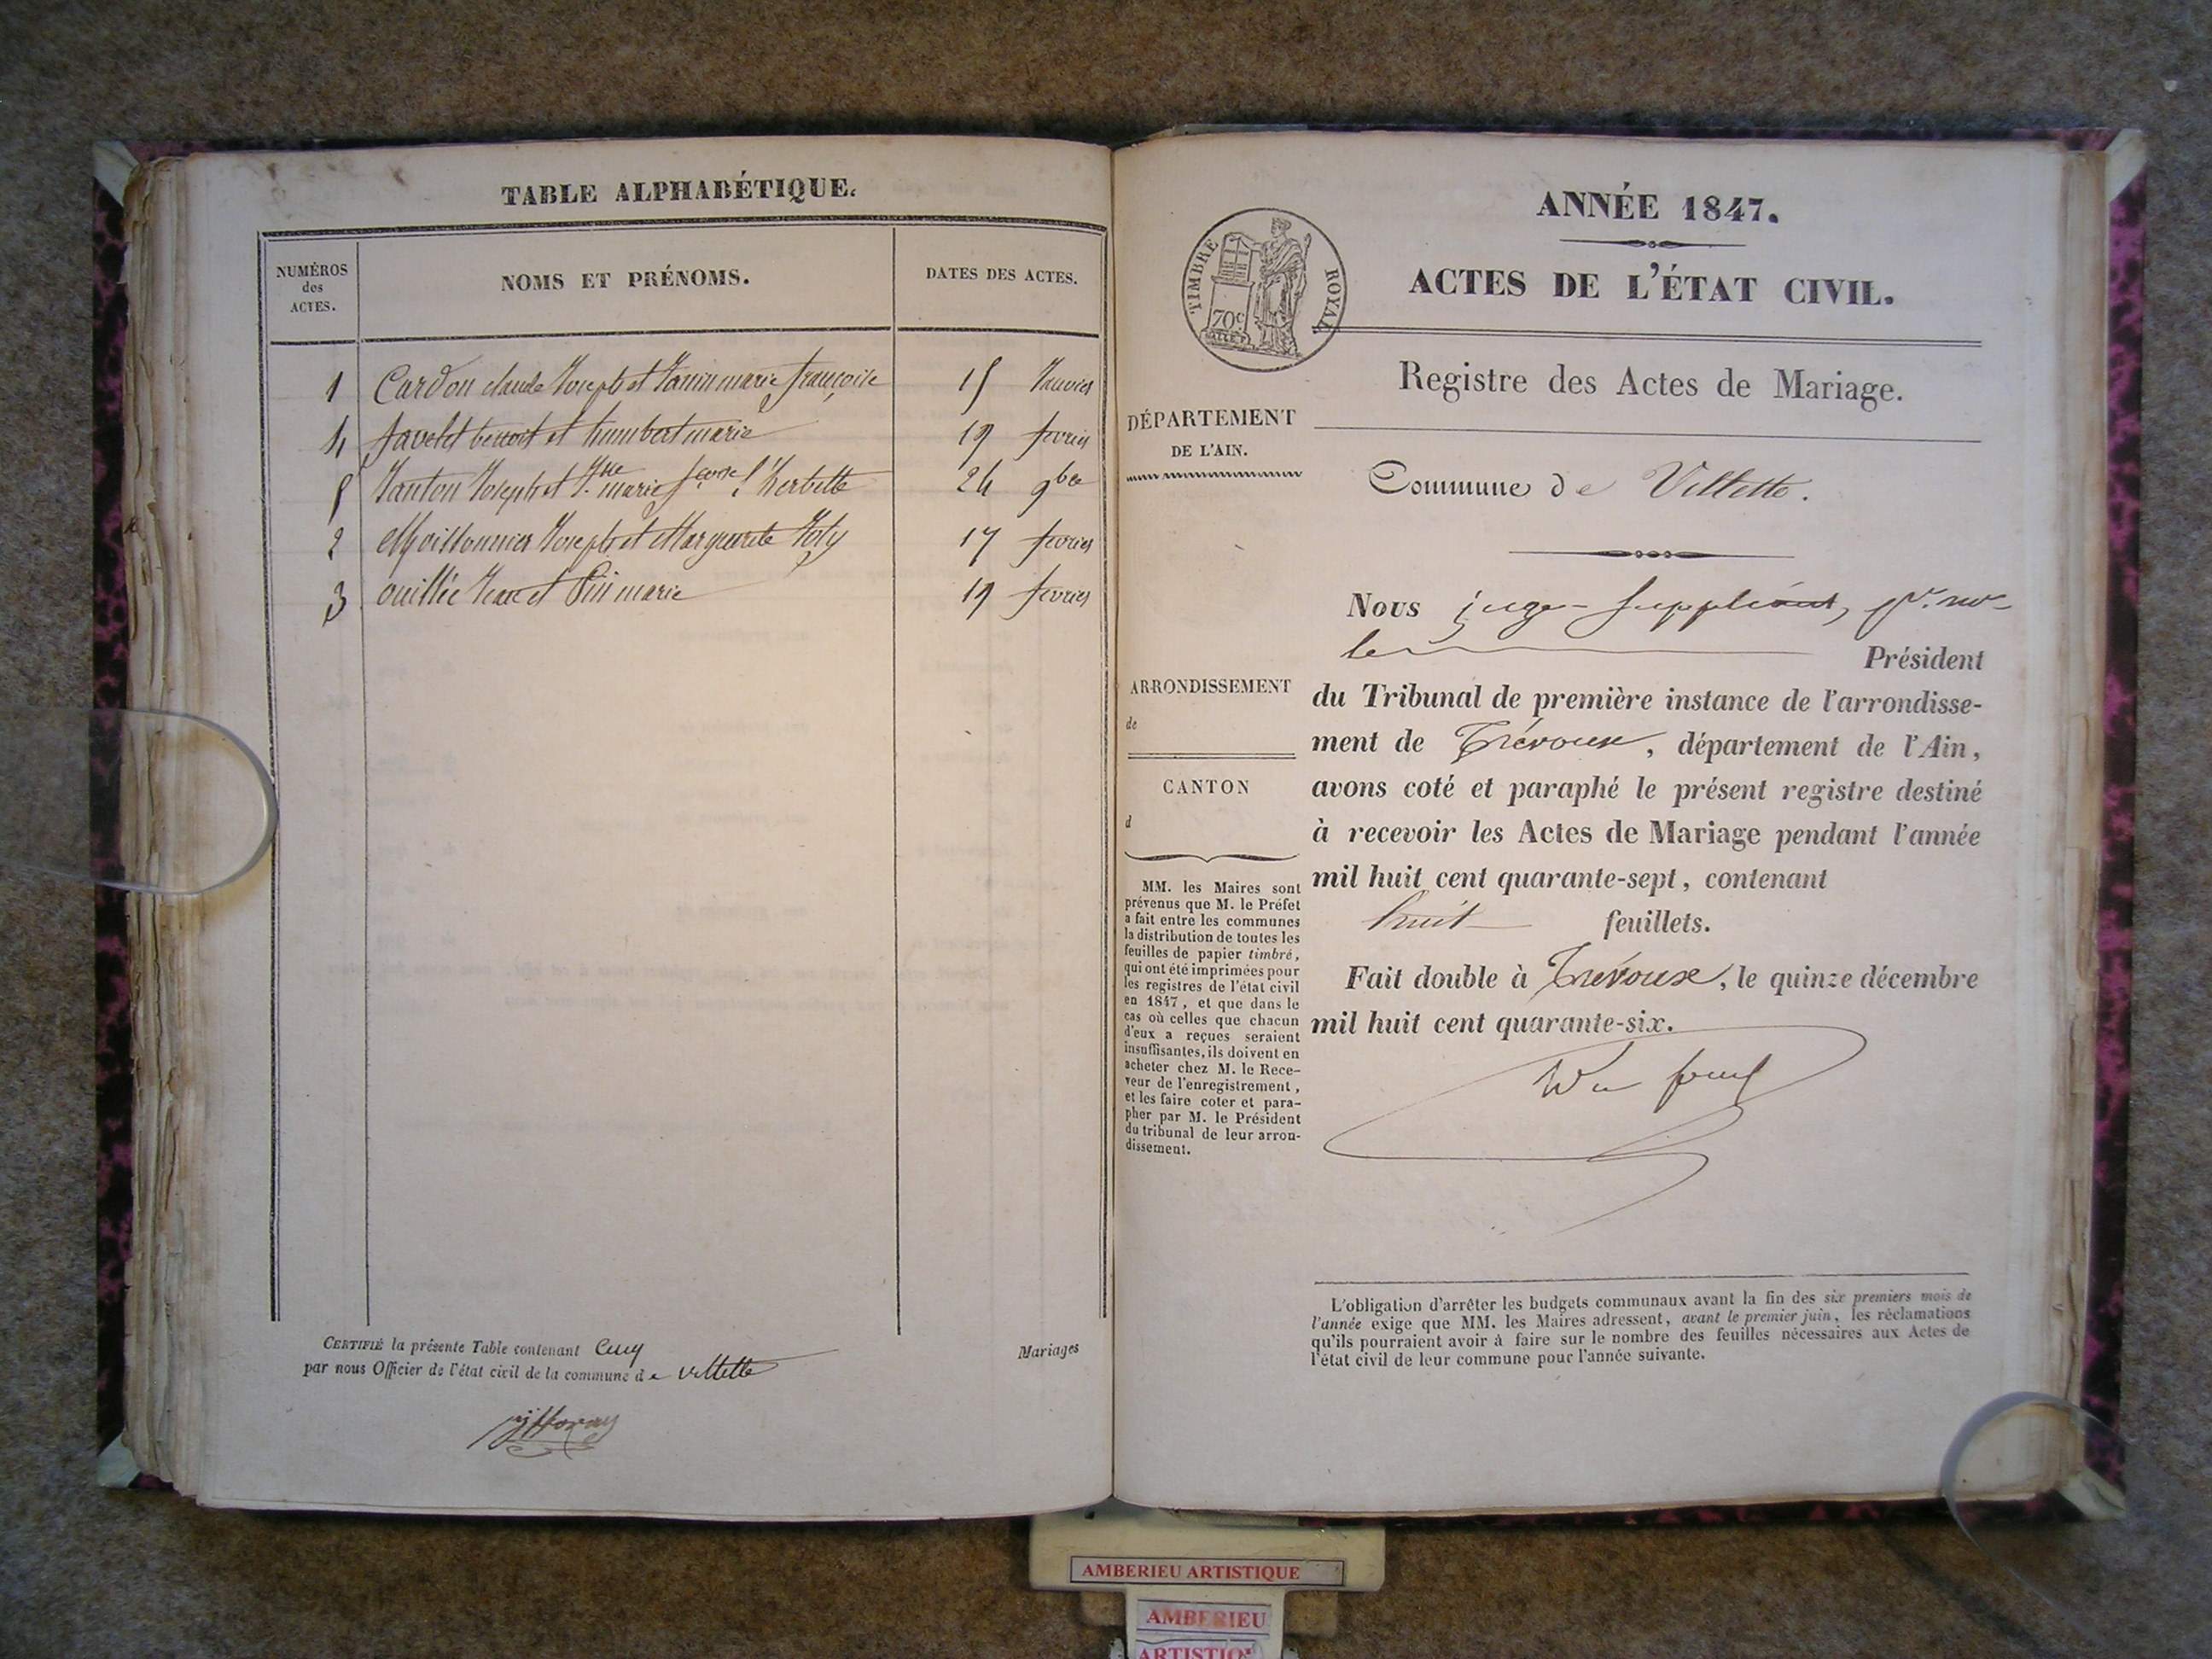 TABLE ALPHABÉTIQUE.
NUMÉROS
des
ACTES.
NOMS ET PRÉNOMS.
DATES DES ACTES.
1 Cardon claude Joseph et Janin marie françoise 15 Janvier
4 favelet benoit et humbert marie 19 fevrier
5 Janton Joseph et marie l'herbette 24 9bre
2 Moissonnier Joseph et Marguerite Joly 17 fevrier
3 ouillée Jean et Pin marie 19 fevrier
CERTIFIÉ la présente Table contenant Cinq
par nous Officier de l'état civil de la commune de villette
Mariages
ANNÉE 1847.
ACTES DE L'ÉTAT CIVIL.
TIMBRE ROYAL
70c
Registre des Actes de Mariage.
DÉPARTEMENT
DE L'AIN.
Commune de Villette.
Nous juge-suppléant, pr. mr
le Président
ARRONDISSEMENT
de
du Tribunal de première instance de l'arrondisse-
ment de Trévoux, département de l'Ain,
CANTON
d
avons coté et paraphé le présent registre destiné
à recevoir les Actes de Mariage pendant l'année
mil huit cent quarante-sept, contenant
huit feuillets.
Fait double à Trévoux, le quinze décembre
mil huit cent quarante-six.
MM. les Maires sont
prévenus que M. le Préfet
a fait entre les communes
la distribution de toutes les
feuilles de papier timbré,
qui ont été imprimées pour
les registres de l'état civil
en 1847, et que dans le
cas où celles que chacun
d'eux a reçues seraient
insuffisantes, ils doivent en
acheter chez M. le Rece-
veur de l'enregistrement,
et les faire coter et para-
pher par M. le Président
du tribunal de leur arron-
dissement.
L'obligation d'arrêter les budgets communaux avant la fin des six premiers mois de
l'année exige que MM. les Maires adressent, avant le premier juin, les réclamations
qu'ils pourraient avoir à faire sur le nombre des feuilles nécessaires aux Actes de
l'état civil de leur commune pour l'année suivante.
AMBERIEU ARTISTIQUE
AMBERIEU
ARTISTIQU